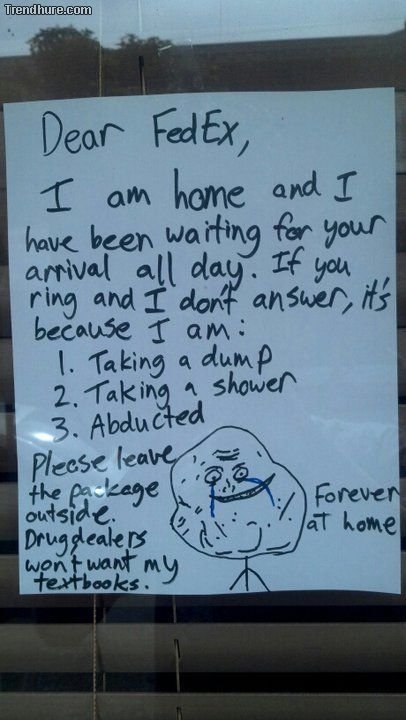 Trendhure.com
Dear FedEx,
I am home and I
have been waiting for your
arrival all day. If you
ring and I don't answer, it's
because I am:
1. Taking a dump
2. Taking a shower
3. Abducted
Please leave
the package
outside.
Drug dealers
won't want my
textbooks.
Forever
at home